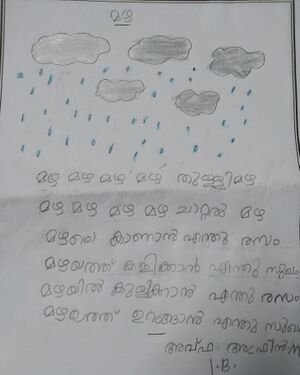 മഴ
മഴ മഴ മഴ മഴ തുള്ളിമഴ
മഴ മഴ മഴ മഴ ചാറ്റൽ മഴ
മഴയെ കാണാൻ എന്തു രസം
മഴയത്ത് കളിക്കാൻ എന്തു സുഖം
മഴയിൽ കുളിക്കാൻ എന്തു രസം
മഴയത്ത് ഉറങ്ങാൻ എന്തു സുഖം
1.B.